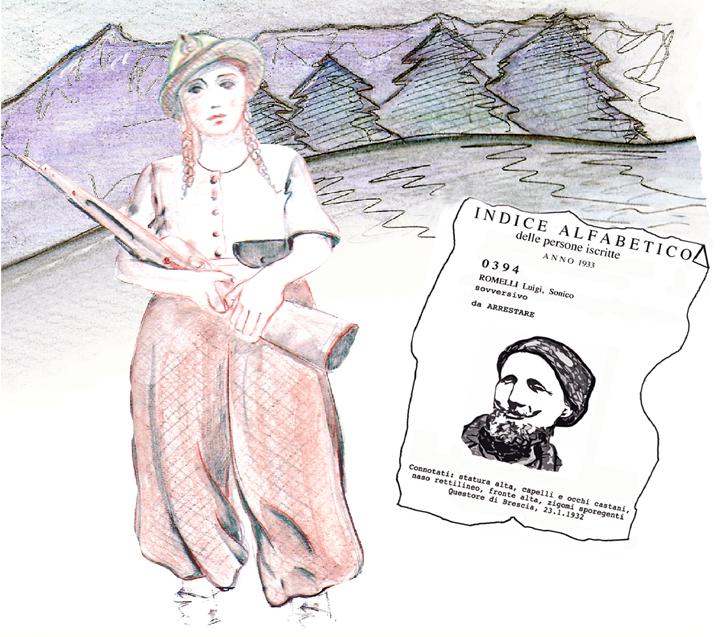 INDICE ALFABETICO
delle persone iscritte
ANNO 1933
0394
ROMELLI Luigi, Sonico
sovversivo
da ARRESTARE
Connotati: statura alta, capelli e occhi castani,
naso rettilineo, fronte alta, zigomi sporegenti
Questore di Brescia, 23.1.1932